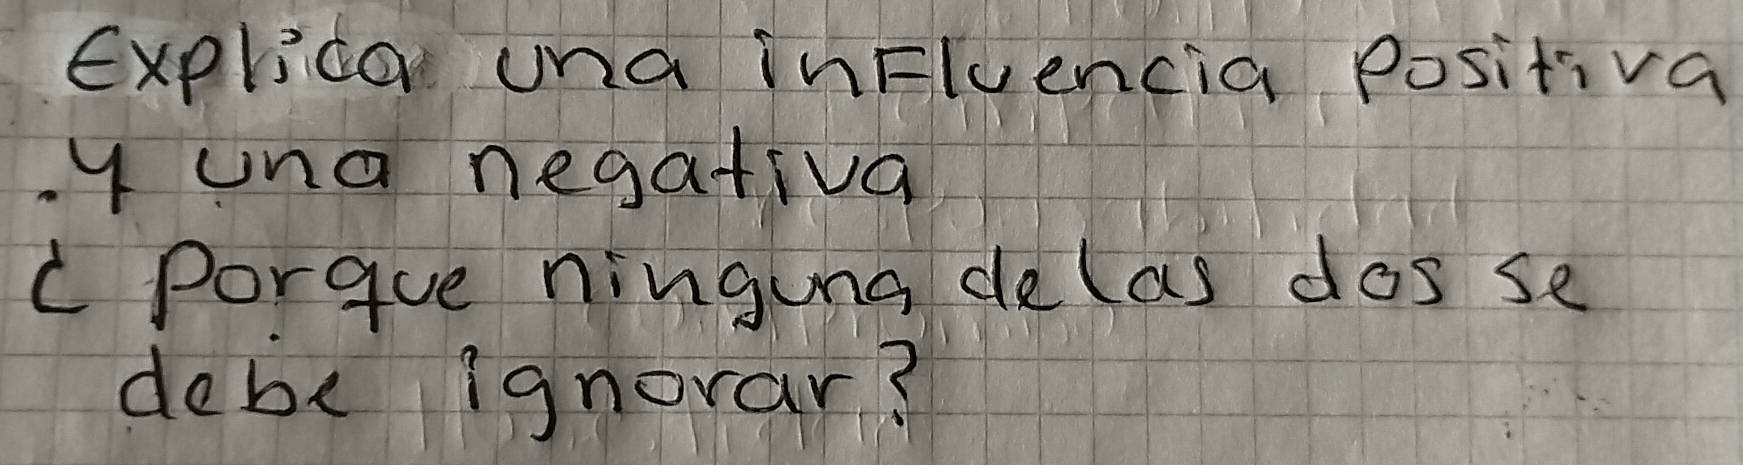 Explica una inFluencia Positiva
.y una negativa
¿ Porque ninguna delas dos se
debe ignorar?